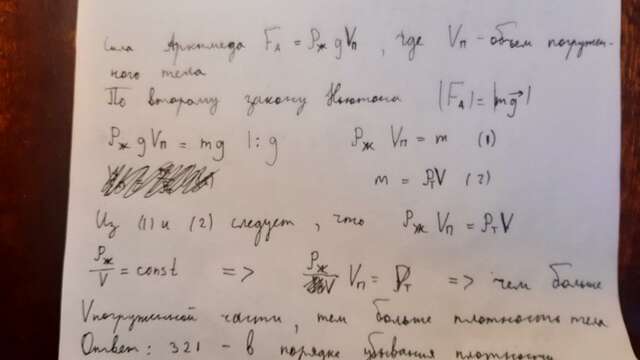 Сила Архимеда F_A = ρ_ж g V_п , где V_п - объём погружен-
ного тела
По второму закону Ньютона |F_A| = |mg⃗|
ρ_ж g V_п = mg |:g ρ_ж V_п = m (1)
m = ρ_т V (2)
Из (1) и (2) следует, что ρ_ж V_п = ρ_т V
ρ_ж/V = const => ρ_ж/V V_п = ρ_т => чем больше
V погруженной части, тем больше плотность тела
Ответ: 321 - в порядке убывания плотности